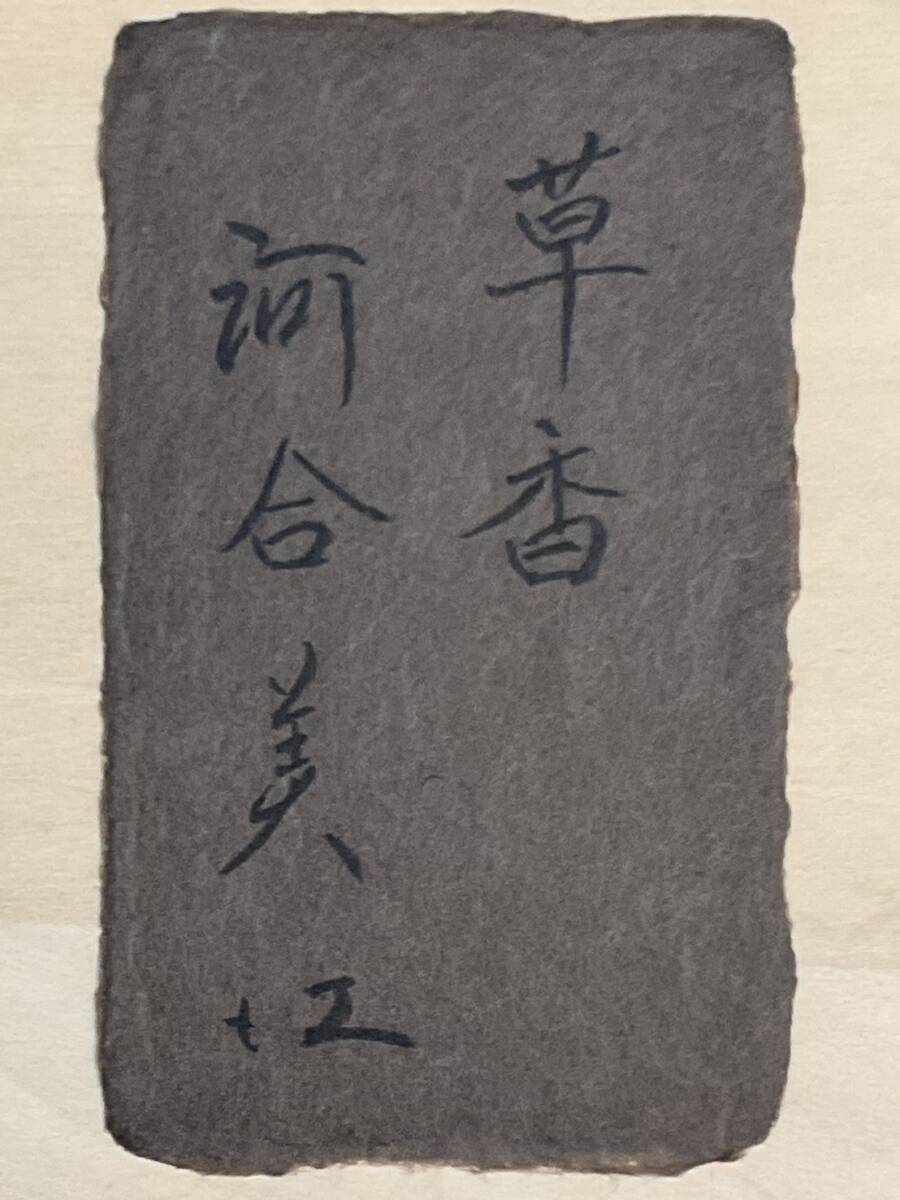 草香
河合美江